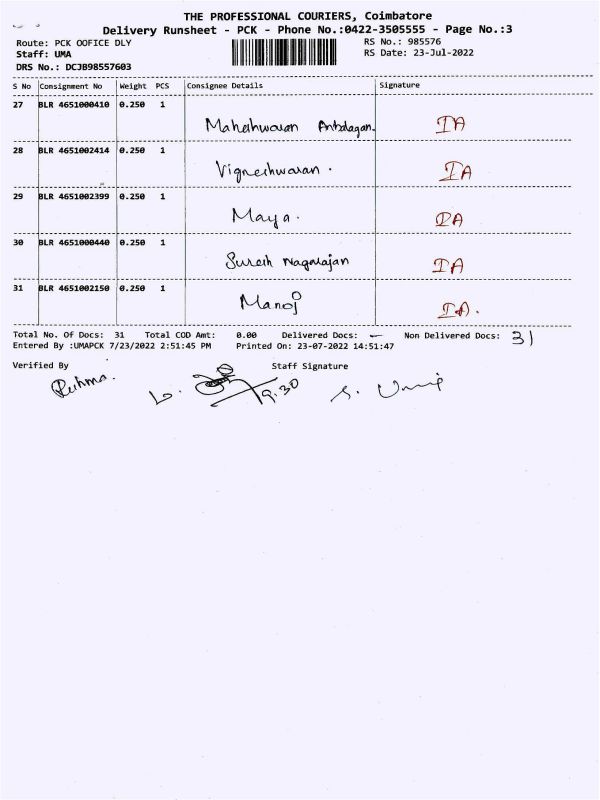 THE PROFESSIONAL COURIERS, Coimbatore
Delivery Runsheet - PCK - Phone No.:0422-3505555 - Page No.:3
Route: PCK OOFICE DLY RS No.: 985576
Staff: UMA RS Date: 23-Jul-2022
DRS No.: DCJB98557603
S No Consignment No Weight PCS Consignee Details Signature
27 BLR 4651000410 0.250 1
Maheshwaran Anbalagan. IA
28 BLR 4651002414 0.250 1
Vigneshwaran. IA
29 BLR 4651002399 0.250 1
Maya. IA
30 BLR 4651000440 0.250 1
Suresh Nagarajan IA
31 BLR 4651002150 0.250 1
Manoj IA.
Total No. Of Docs: 31 Total COD Amt: 0.00 Delivered Docs: — Non Delivered Docs: 31
Entered By :UMAPCK 7/23/2022 2:51:45 PM Printed On: 23-07-2022 14:51:47
Verified By Staff Signature
9.30